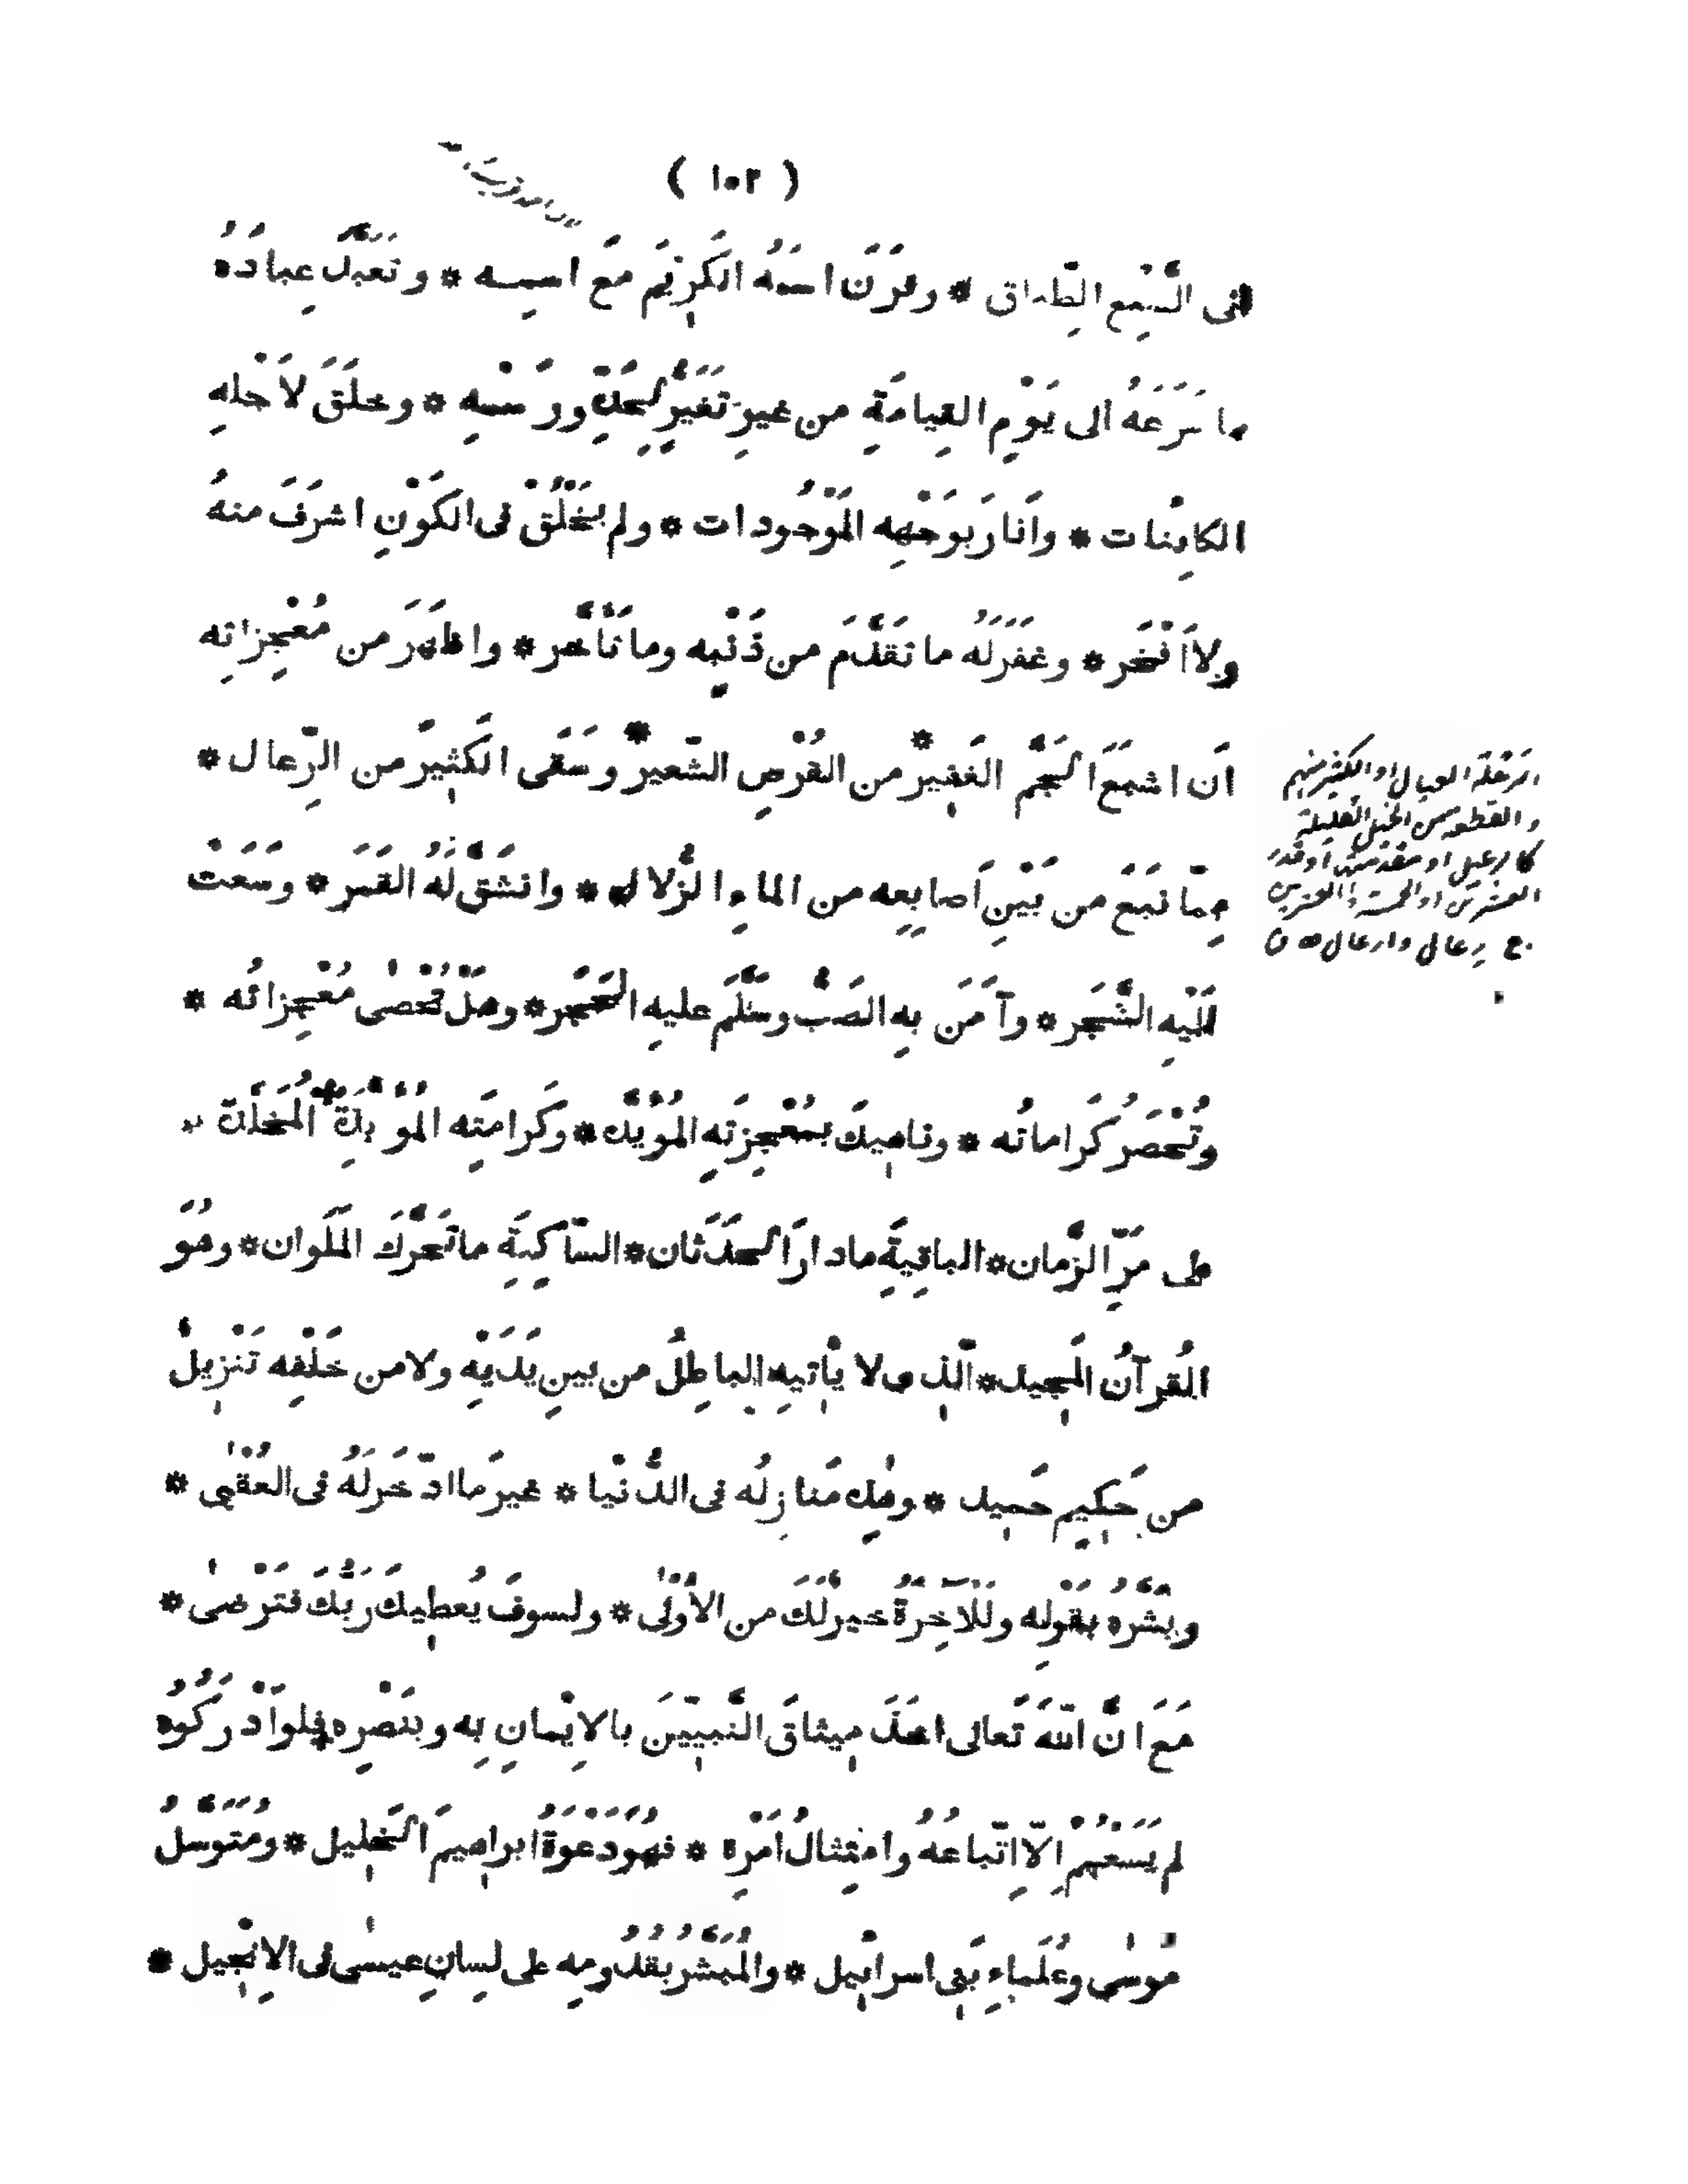 ( ١٠٢ )
فى السَّبْعِ الطِّباق * وقَرَنَ اسمَهُ الكَرِيْمَ مَعَ اسمِــه * وتَعبَّدَ عِبادَهُ
ما شَرَعَهُ الى يَوْمِ القِيامَةِ من غيرِ تَغَيُّرٍ لِحَدِّهِ ورَسْمِهِ * وخلَقَ لاَجْلِهِ
الكائِنات * واَنارَ بوجْهِهِ المَوْجُودات * ولم يَخْلُقْ فى الكَوْنِ اشرَفَ منهُ
ولاَ افْخَر * وغفَرَ لَهُ ما تقَدَّمَ من ذَنْبِه وما تأَخَّر * واظهَرَ من مُعْجِزاتِه
اَن اشبَعَ الجَمَّ الغَفِيْرَ من القُرْصِ الشَّعير * وسَقَى الكَثِيْرَ من الرِّعال *
مِمّا نبَعَ من بَيْنِ اَصابِعِه من الماءِ الزُّلال * وانشَقَّ لَهُ القَمَر * وسَعَتْ
اِلَيْهِ الشَّجَر * وآمَنَ بِهِ الضَبُّ وسَلَّمَ عليهِ الحَجَر * وهَلْ تُحْصٰى مُعْجِزاتُه *
وتُحْصَرُ كَراماتُه * وناهِيكَ بمُعْجِزَتِهِ المُؤَيَّدَه * وكَرامَتِه المُؤَبَّدَةِ المُخَلَّدَة *
على مَرِّ الزَّمان * الباقِيَةِ ما دارَ الحَدَثان * السّاكِنَةِ ما تَحَرَّكَ المَلَوان * وهُوَ
القُرآنُ المَجِيد * الّذِى لا يأتيهِ الباطِلُ من بينِ يَدَيْهِ ولا من خَلْفِه تَنْزِيلٌ
من حَكِيمٍ حَمِيد * وهٰذِه مَنازِلُه فى الدُّنْيا * غيرَ ما ادّخَرَ لَهُ فى العُقْبٰى *
وبَشَّرَهُ بقَوْلِه وللآخِرَةُ خيرٌ لَكَ من الاُوْلٰى * ولسوفَ يُعطِيكَ رَبُّكَ فتَرْضٰى *
مَعَ انَّ اللّهَ تَعالى اخذَ مِيثاقَ النَبِيّيْنَ بالاِيْمانِ بِه وبنَصْرِه فلو اَدْرَكُوهُ
لم يَسَعْهُمْ اِلّا اتِّباعُهُ وامْتِثالُ اَمْرِهِ * فهُوَ دَعْوَةُ ابراهِيمَ الخَلِيل * ومُتَوَسَّلُ
مُوسٰى وعُلَماءِ بَنِى اسرائِيل * والمُبَشَّرُ بقُدُومِه على لِسانِ عيسٰى فى الاِنْجِيل *